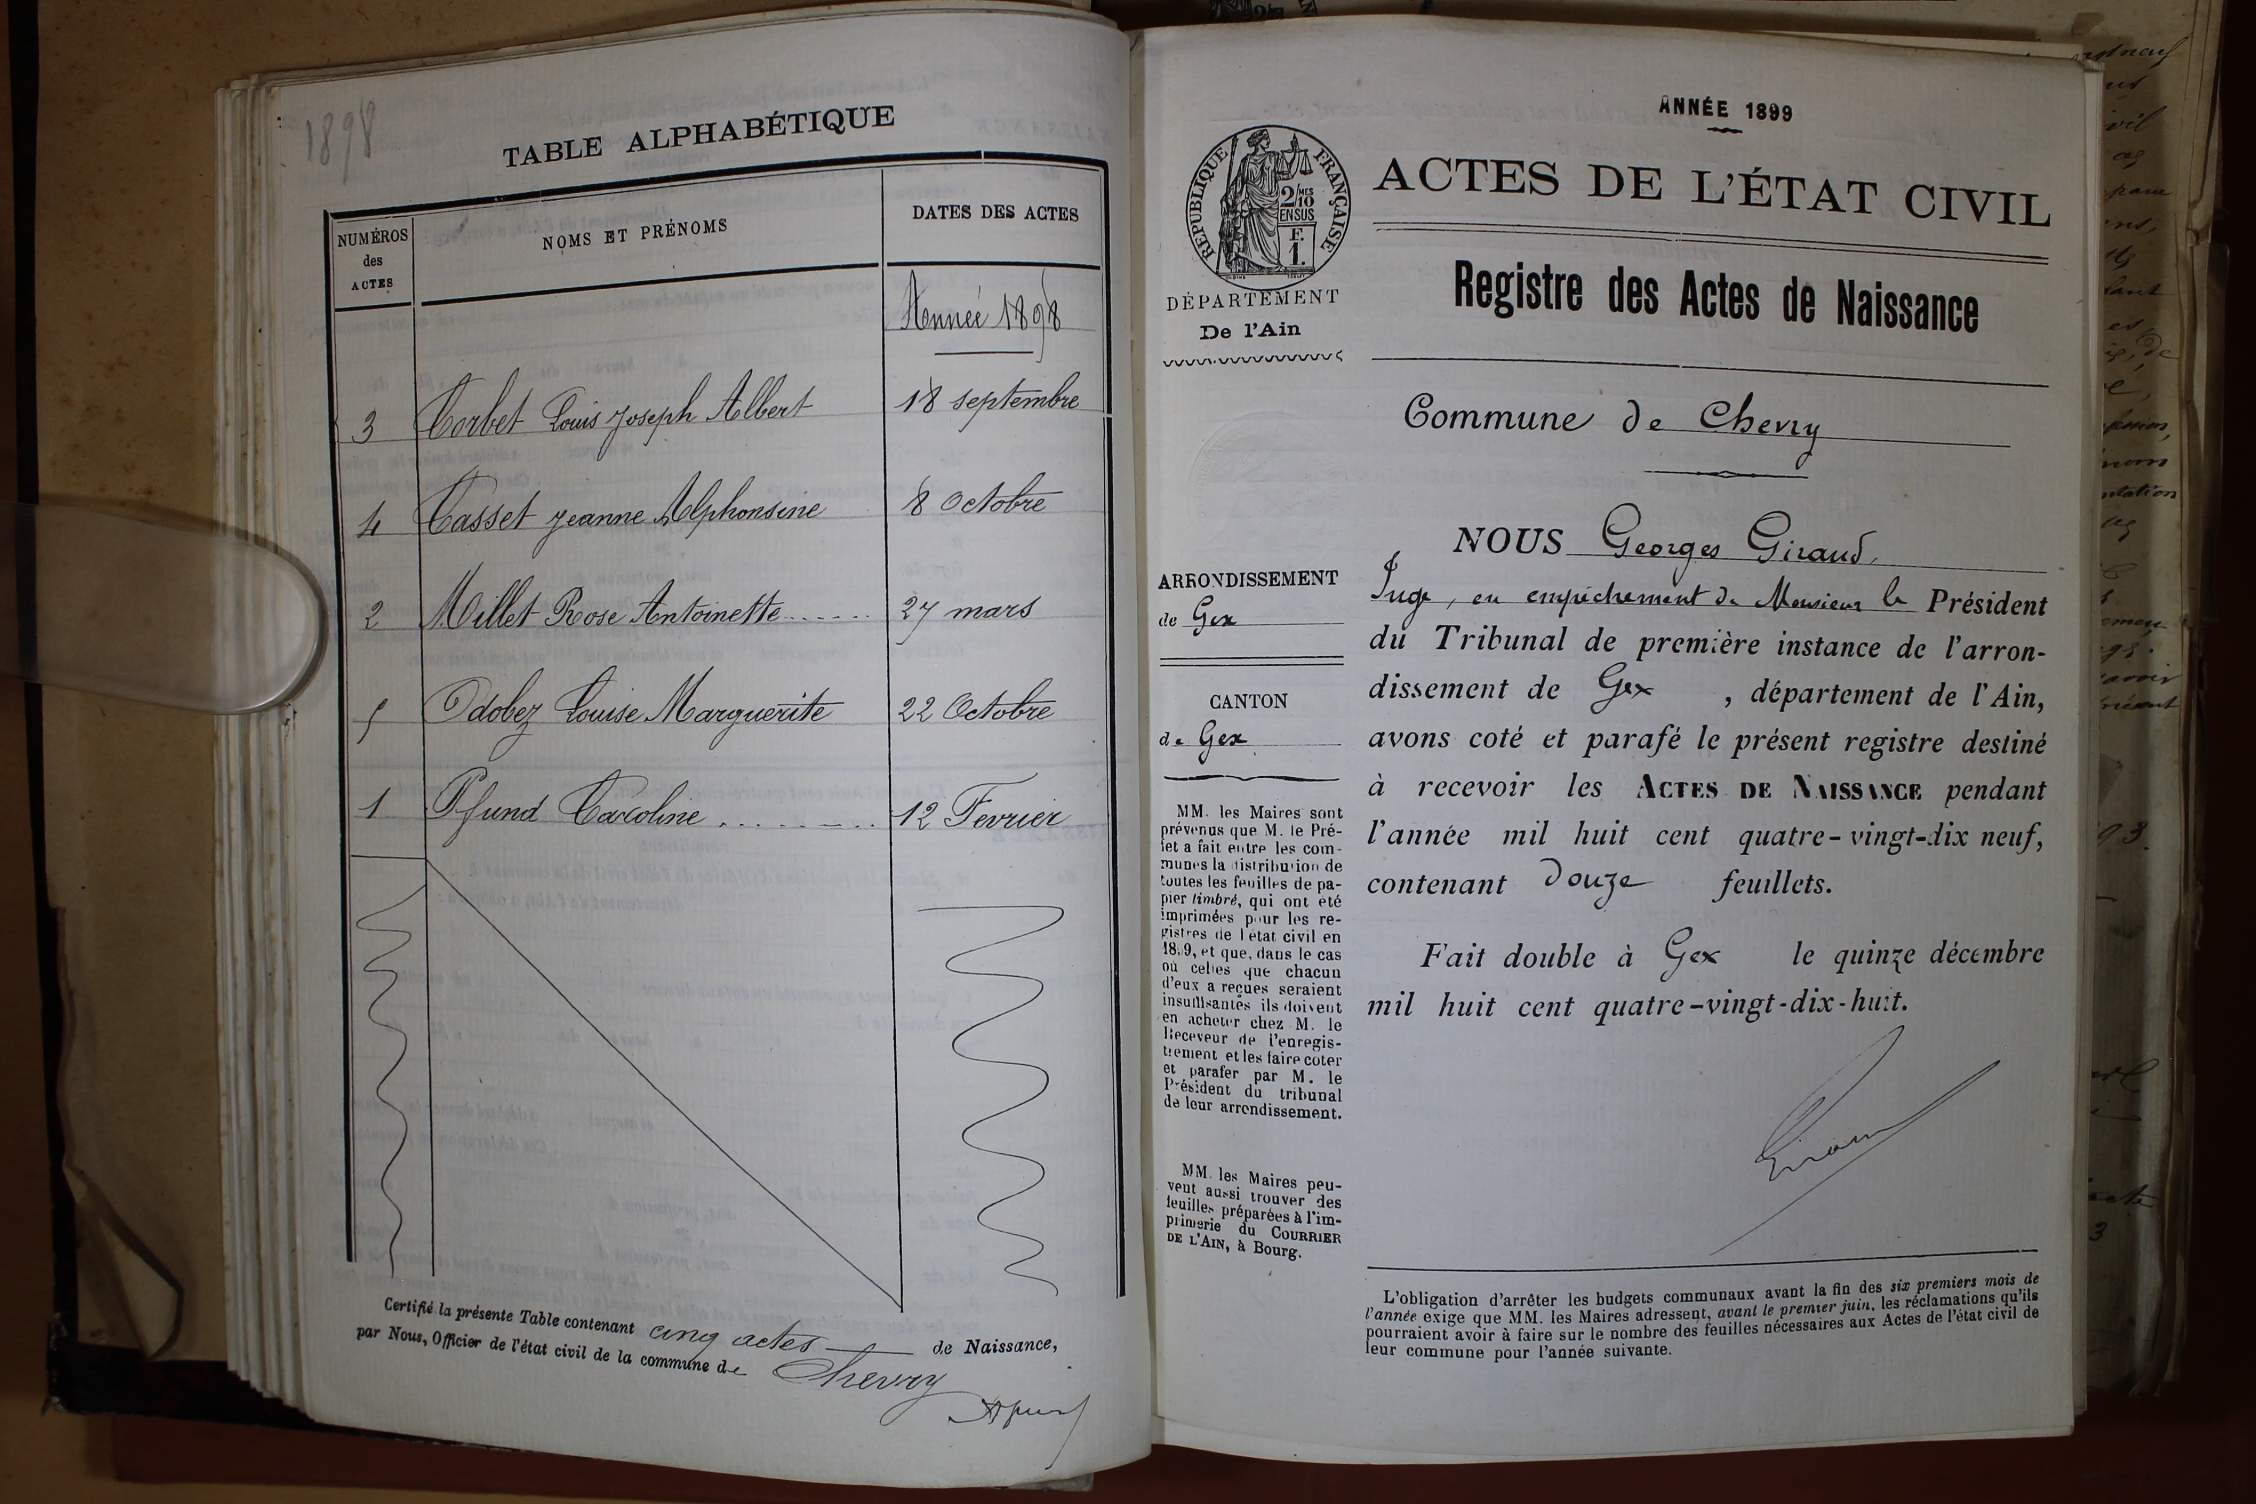 1898
TABLE ALPHABÉTIQUE
NUMÉROS
des
ACTES
NOMS ET PRÉNOMS
DATES DES ACTES
Année 1898
3 Corbet Louis Joseph Albert 18 septembre
4 Casset Jeanne Alphonsine 8 Octobre
2 Millet Rose Antoinette ...... 27 mars
5 Odobez Louise Marguerite 22 Octobre
1 Pfund Caroline ........ 12 Fevrier
Certifié la présente Table contenant cinq actes de Naissance,
par Nous, Officier de l'état civil de la commune de Chevry
ANNÉE 1899
RÉPUBLIQUE FRANÇAISE
2/10 MES
EN SUS
F.
1.
DÉPARTEMENT
De l'Ain
ARRONDISSEMENT
de Gex
CANTON
de Gex
MM. les Maires sont
prévenus que M. le Pré-
fet a fait entre les com-
munes la distribution de
toutes les feuilles de pa-
pier timbré, qui ont été
imprimées pour les re-
gistres de l'état civil en
1899, et que, dans le cas
où celles que chacun
d'eux a reçues seraient
insuffisantes ils doivent
en acheter chez M. le
Receveur de l'enregis-
trement et les faire coter
et parafer par M. le
Président du tribunal
de leur arrondissement.
MM. les Maires peu-
vent aussi trouver des
feuilles préparées à l'im-
primerie du COURRIER
DE L'AIN, à Bourg.
ACTES DE L'ÉTAT CIVIL
Registre des Actes de Naissance
Commune de Chevry
NOUS Georges Giraud,
Juge, en empêchement de Monsieur le Président
du Tribunal de première instance de l'arron-
dissement de Gex, département de l'Ain,
avons coté et parafé le présent registre destiné
à recevoir les ACTES DE NAISSANCE pendant
l'année mil huit cent quatre-vingt-dix neuf,
contenant douze feuillets.
Fait double à Gex le quinze décembre
mil huit cent quatre-vingt-dix-huit.
Giraud
L'obligation d'arrêter les budgets communaux avant la fin des six premiers mois de
l'année exige que MM. les Maires adressent, avant le premier juin, les réclamations qu'ils
pourraient avoir à faire sur le nombre des feuilles nécessaires aux Actes de l'état civil de
leur commune pour l'année suivante.